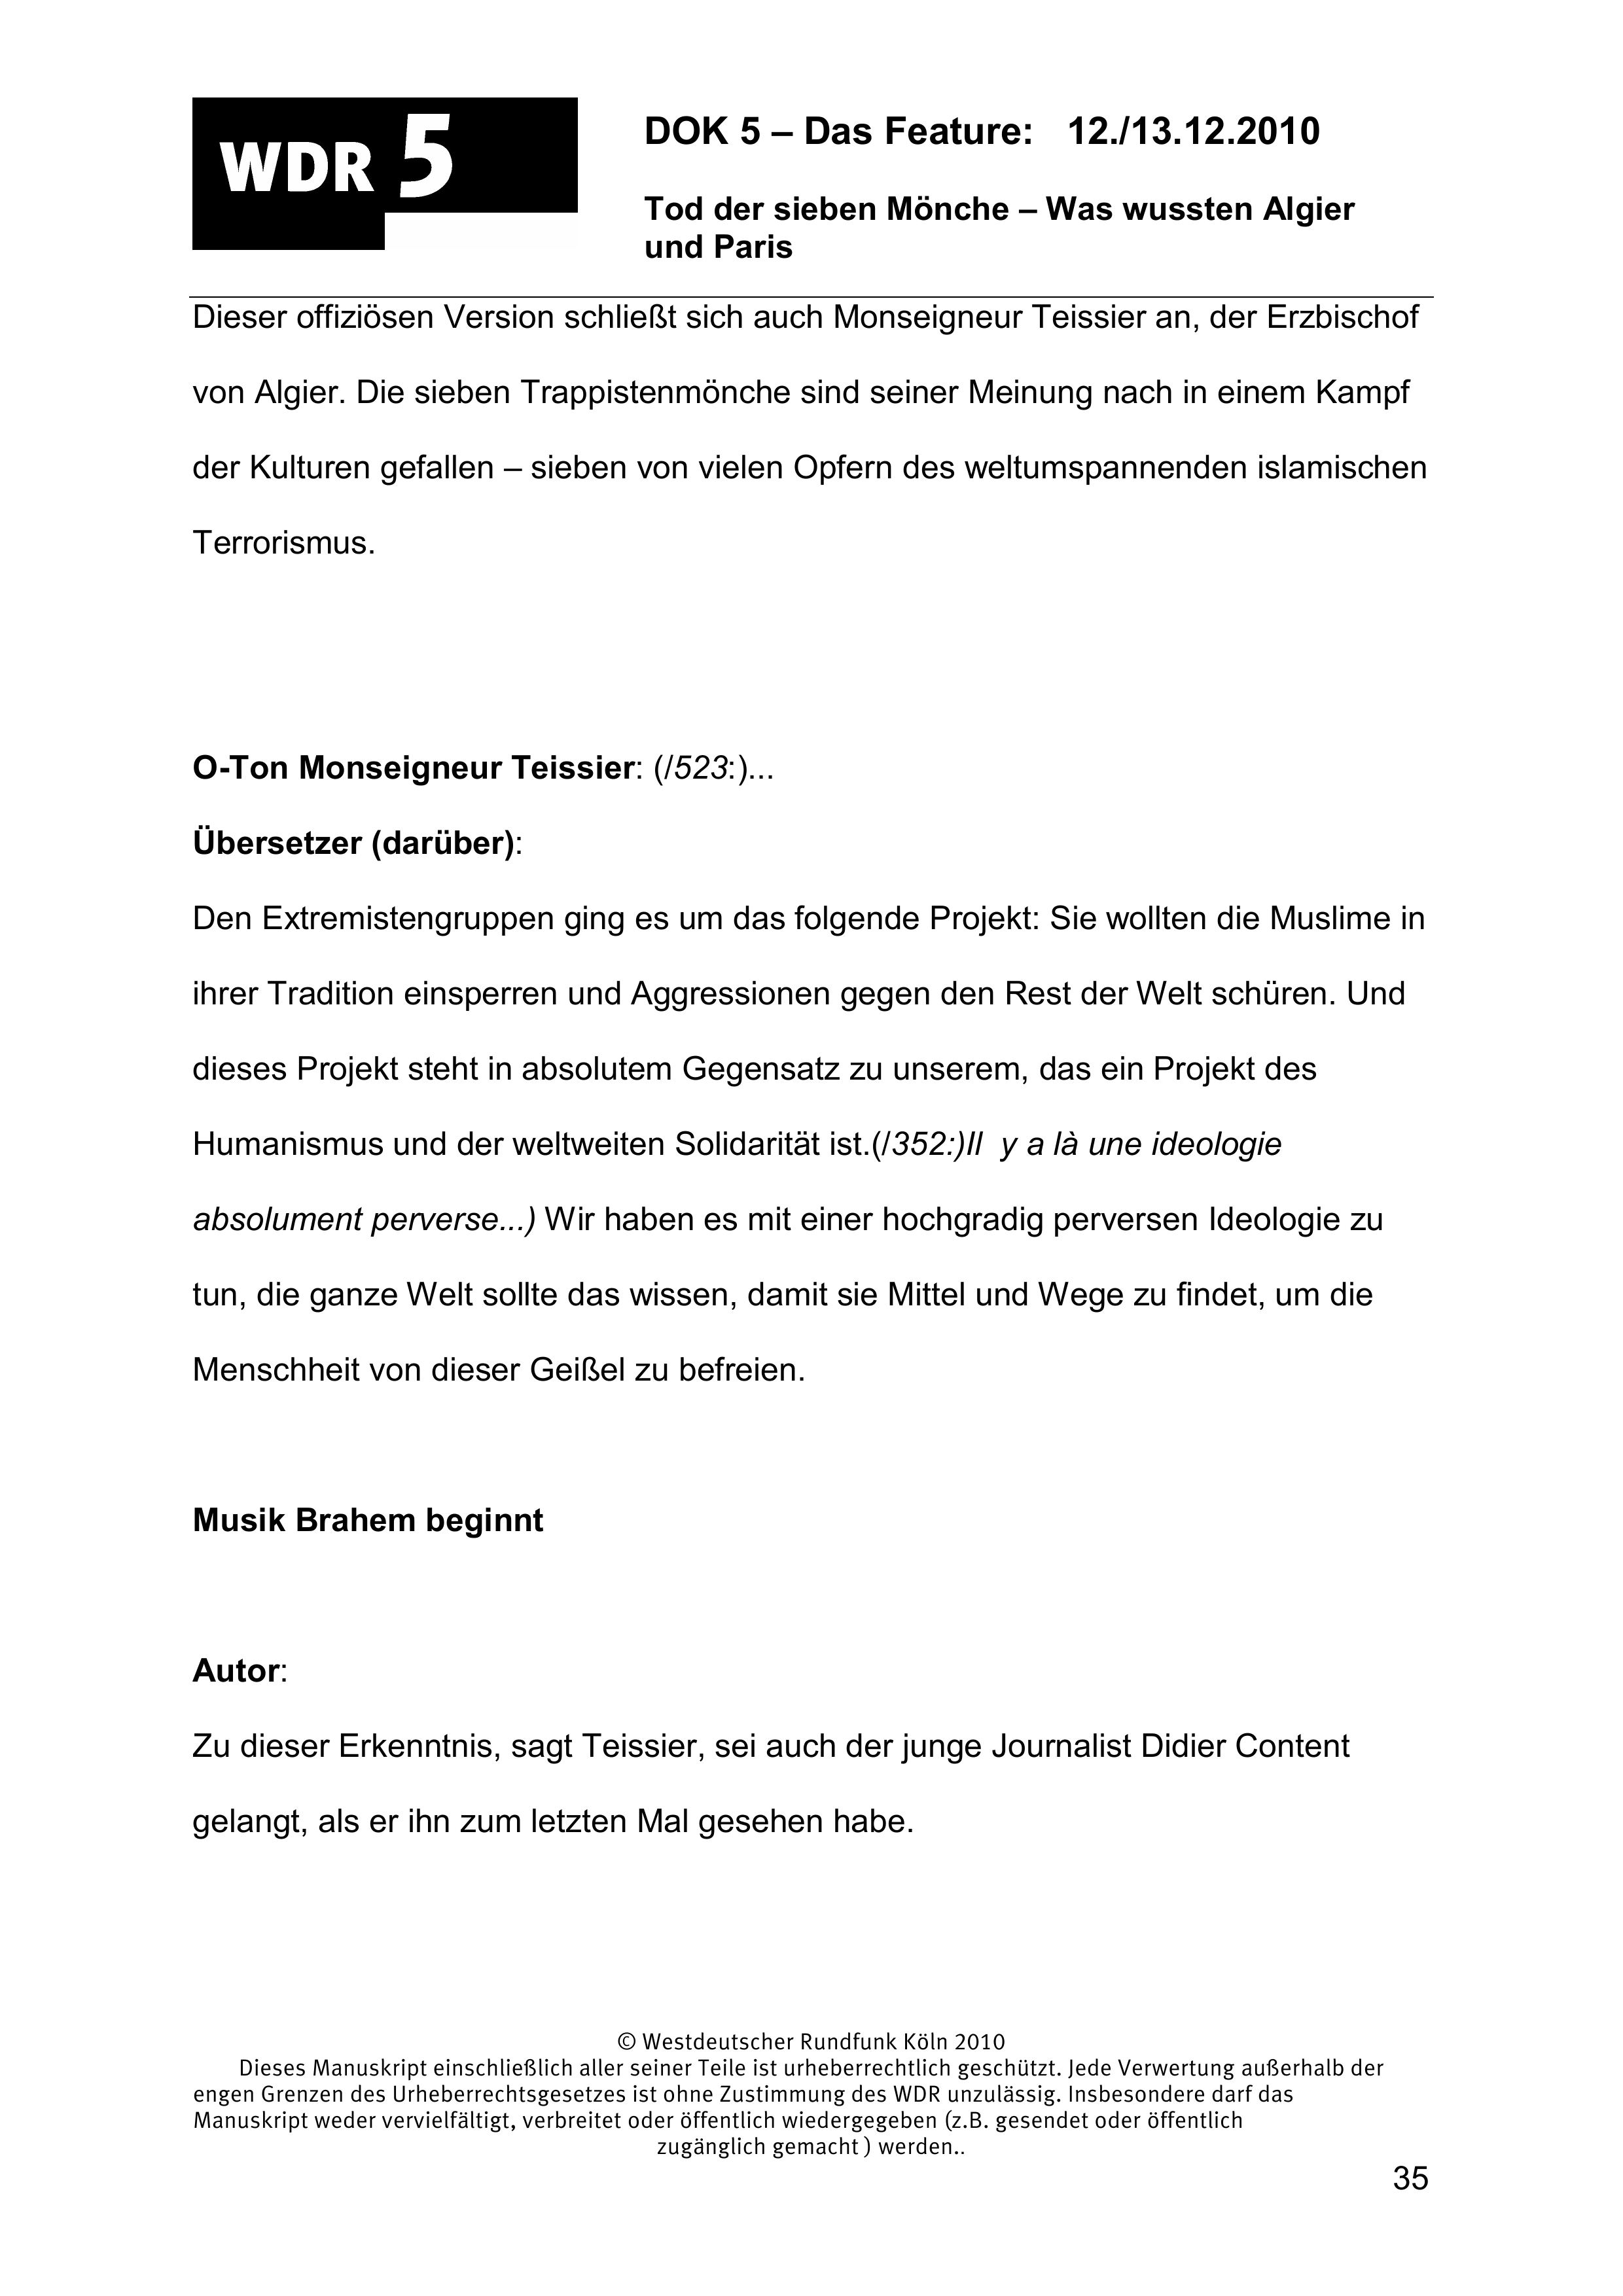 WDR 5
DOK 5 – Das Feature: 12./13.12.2010
Tod der sieben Mönche – Was wussten Algier
und Paris
Dieser offiziösen Version schließt sich auch Monseigneur Teissier an, der Erzbischof
von Algier. Die sieben Trappistenmönche sind seiner Meinung nach in einem Kampf
der Kulturen gefallen – sieben von vielen Opfern des weltumspannenden islamischen
Terrorismus.
O-Ton Monseigneur Teissier: (/523:)...
Übersetzer (darüber):
Den Extremistengruppen ging es um das folgende Projekt: Sie wollten die Muslime in
ihrer Tradition einsperren und Aggressionen gegen den Rest der Welt schüren. Und
dieses Projekt steht in absolutem Gegensatz zu unserem, das ein Projekt des
Humanismus und der weltweiten Solidarität ist.(/352:)Il  y a là une ideologie
absolument perverse...) Wir haben es mit einer hochgradig perversen Ideologie zu
tun, die ganze Welt sollte das wissen, damit sie Mittel und Wege zu findet, um die
Menschheit von dieser Geißel zu befreien.
Musik Brahem beginnt
Autor:
Zu dieser Erkenntnis, sagt Teissier, sei auch der junge Journalist Didier Content
gelangt, als er ihn zum letzten Mal gesehen habe.
© Westdeutscher Rundfunk Köln 2010
Dieses Manuskript einschließlich aller seiner Teile ist urheberrechtlich geschützt. Jede Verwertung außerhalb der
engen Grenzen des Urheberrechtsgesetzes ist ohne Zustimmung des WDR unzulässig. Insbesondere darf das
Manuskript weder vervielfältigt, verbreitet oder öffentlich wiedergegeben (z.B. gesendet oder öffentlich
zugänglich gemacht ) werden..
35